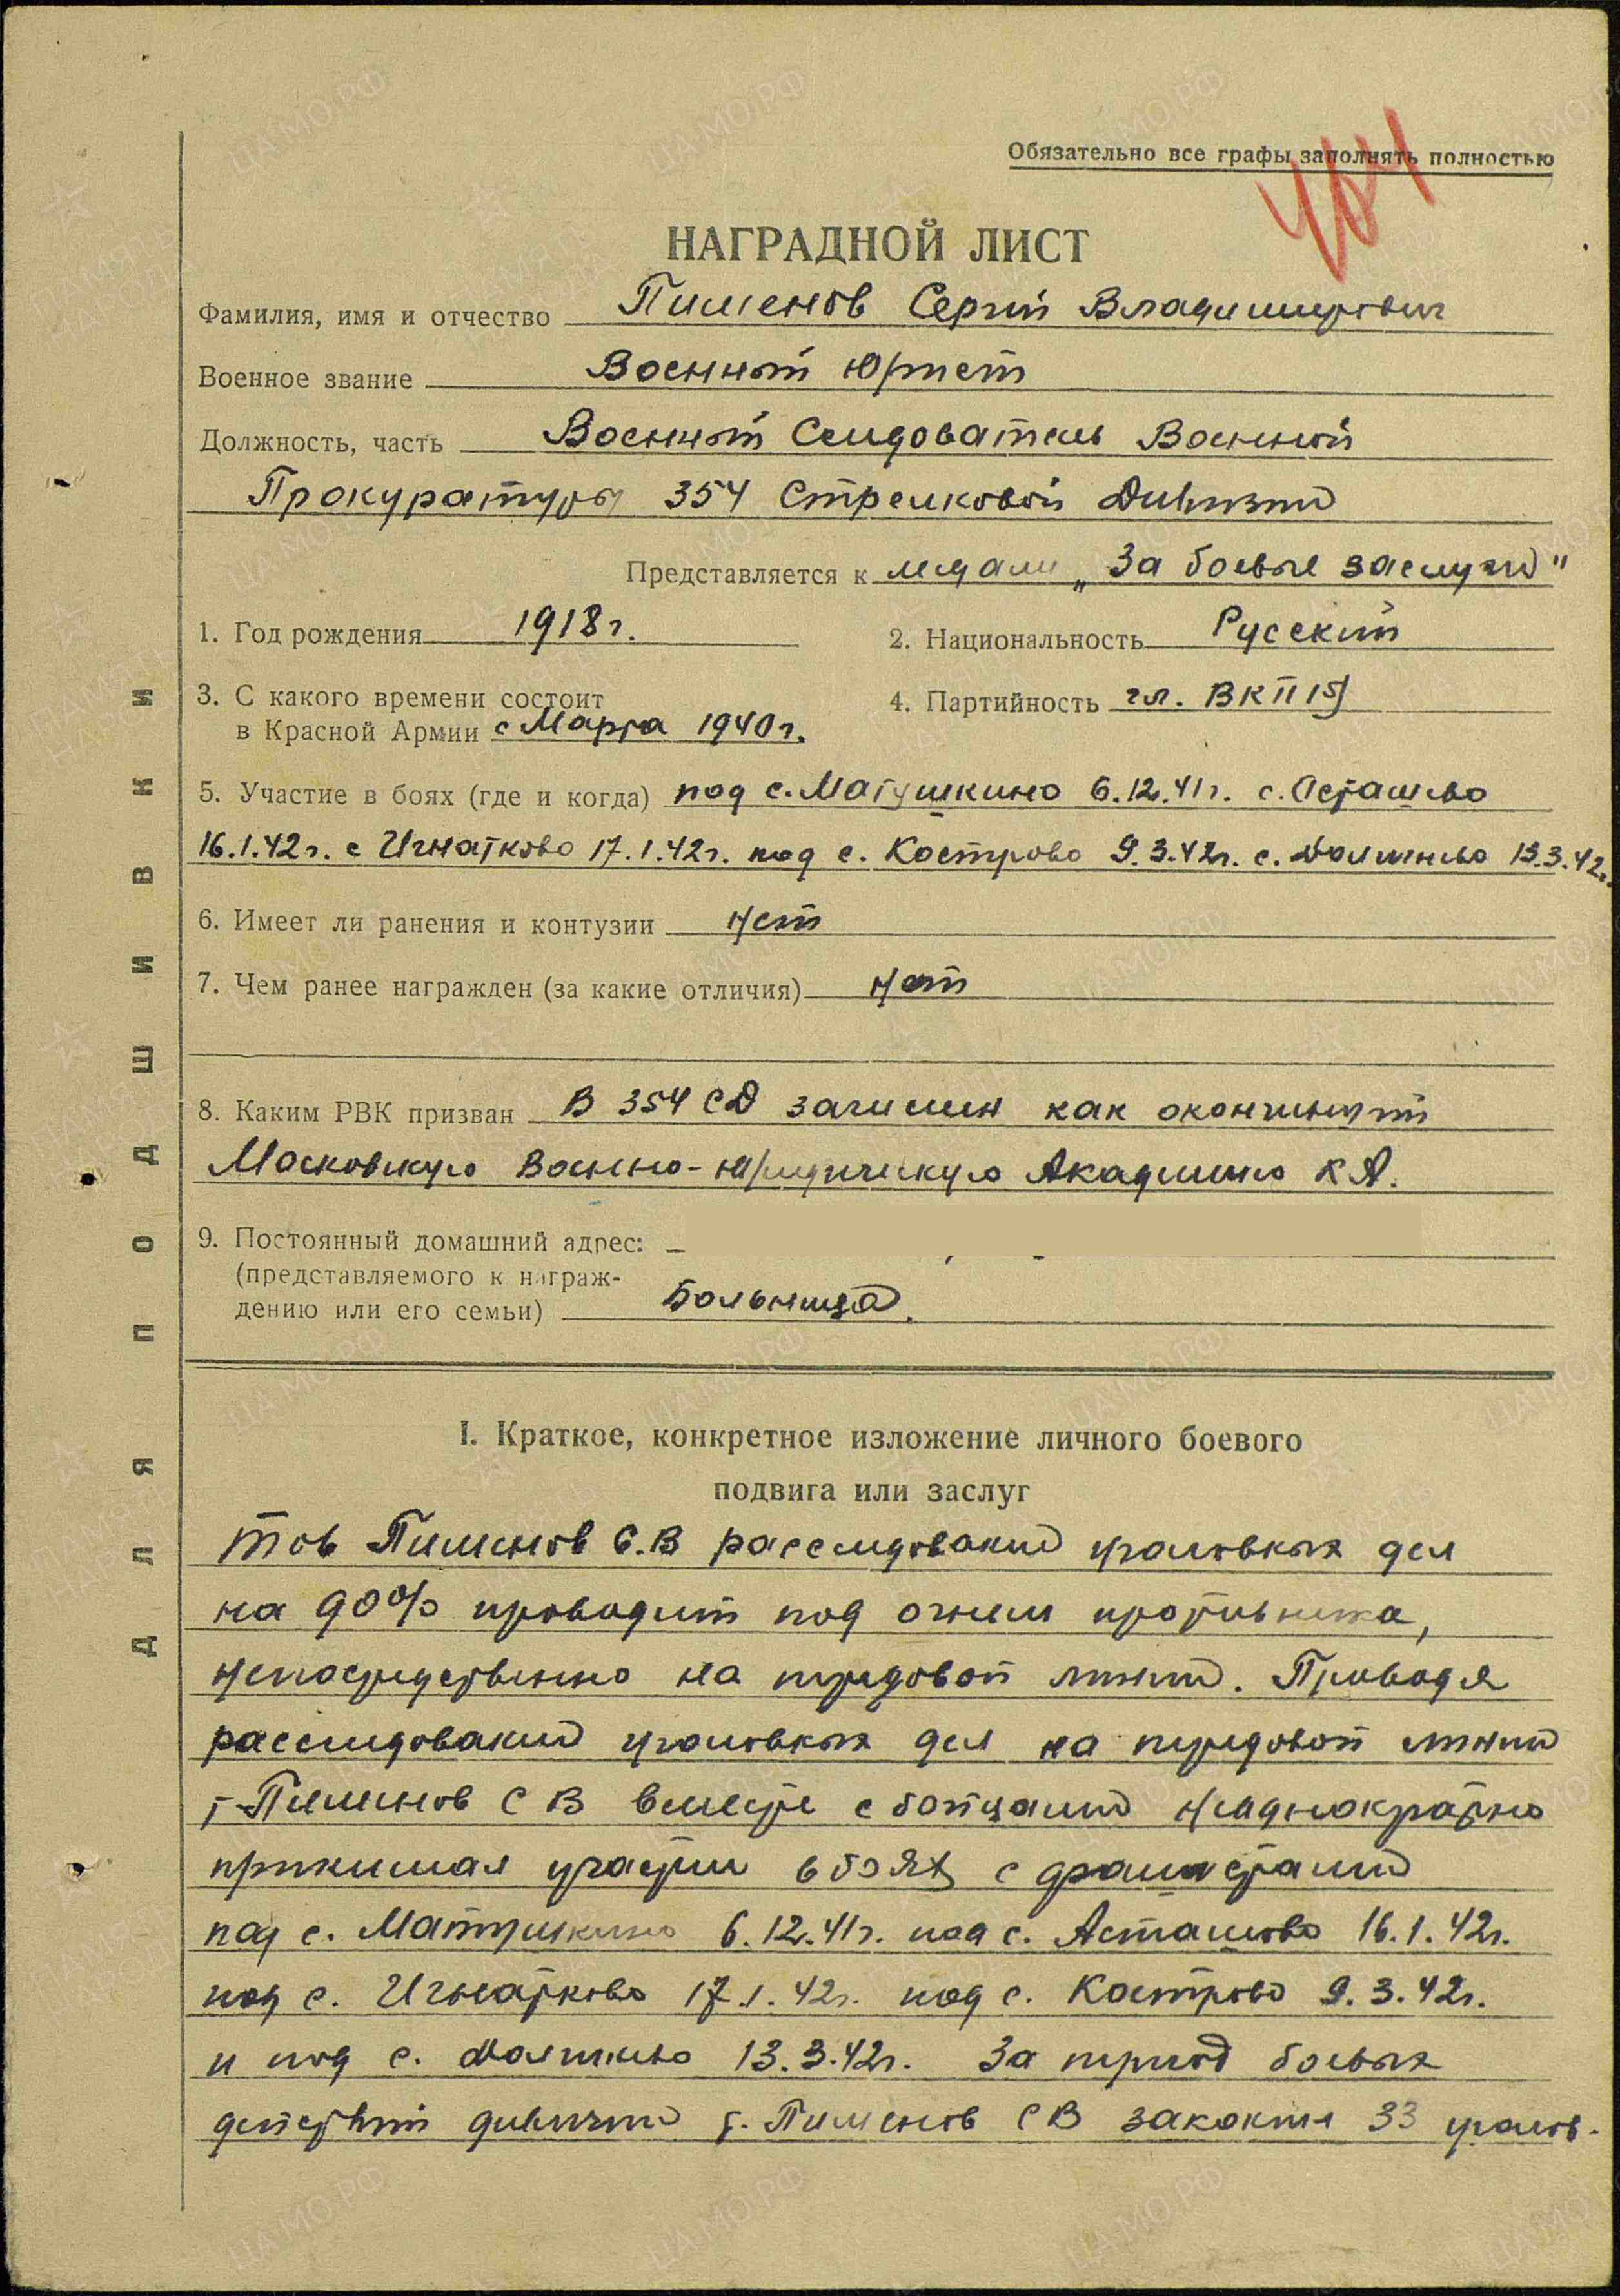 Обязательно все графы заполнять полностью
464
НАГРАДНОЙ ЛИСТ
Фамилия, имя и отчество Пименов Сергей Владимирович
Военное звание Военный Юрист
Должность, часть Военный Следователь Военной
Прокуратуры 354 Стрелковой Дивизии
Представляется к медали „За боевые заслуги"
1. Год рождения 1918 г.
2. Национальность Русский
3. С какого времени состоит
в Красной Армии с Марта 1940 г.
4. Партийность чл. ВКП(б)
5. Участие в боях (где и когда) под с. Матушкино 6.12.41г. с. Асташево
16.1.42г. с Игнатково 17.1.42г. под с. Кострово 9.3.42г. с. 13.3.42г.
6. Имеет ли ранения и контузии нет
7. Чем ранее награжден (за какие отличия) нет
8. Каким РВК призван В 354 СД зачислен как окончивший
Московскую Военно-юридическую Академию К.А.
9. Постоянный домашний адрес:
(представляемого к награж-
дению или его семьи) Больница.
I. Краткое, конкретное изложение личного боевого
подвига или заслуг
Тов Пименов С.В расследований уголовных дел
на 90% проводит под огнем противника,
непосредственно на передовой линии. Проводя
расследований уголовных дел на передовой линии
т. Пименов С В вместе с бойцами неоднократно
принимал участие в боях с фашистами
под с. Матушкино 6.12.41г. под с. Асташево 16.1.42г.
под с. Игнатково 17.1.42г. под с. Кострово 9.3.42г.
и под с. 13.3.42г. За период боевых
действий дивизии т. Пименов С В закончил 33 уголов-
ДЛЯ ПОДШИВКИ